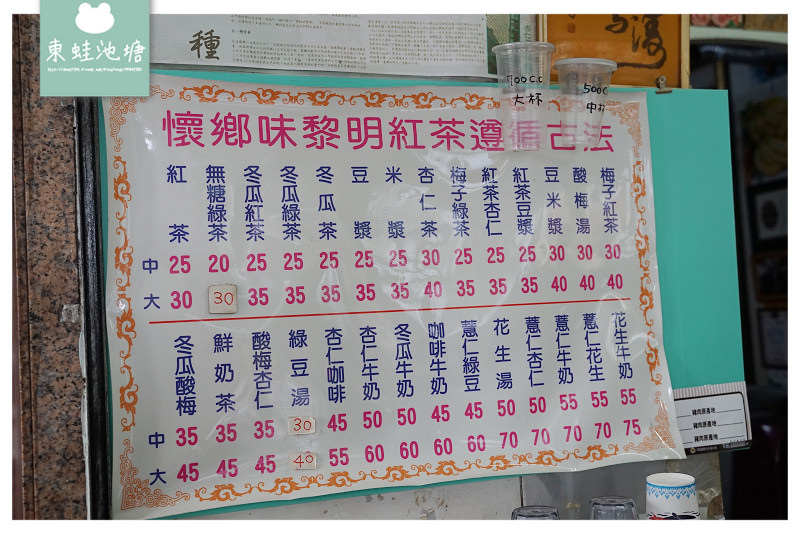 東蛙池塘
種
700C.C
大杯
500C
中杯
懷鄉味黎明紅茶遵循古法
紅茶 無糖綠茶 冬瓜紅茶 冬瓜綠茶 冬瓜茶 豆漿 米漿 杏仁茶 梅子綠茶 紅茶杏仁 紅茶豆漿 豆米漿 酸梅湯 梅子紅茶
中 25 20 25 25 25 25 25 30 25 25 25 30 30 30
大 30 30 35 35 35 35 35 40 35 35 35 40 40 40
冬瓜酸梅 鮮奶茶 酸梅杏仁 綠豆湯 杏仁咖啡 杏仁牛奶 冬瓜牛奶 咖啡牛奶 薏仁綠豆 花生湯 薏仁杏仁 薏仁牛奶 薏仁花生 花生牛奶
中 35 35 35 30 45 50 50 45 45 50 50 55 55 55
大 45 45 45 40 55 60 60 60 60 70 70 70 70 75
豬肉原產地
豬肉原產地
豬肉原產地